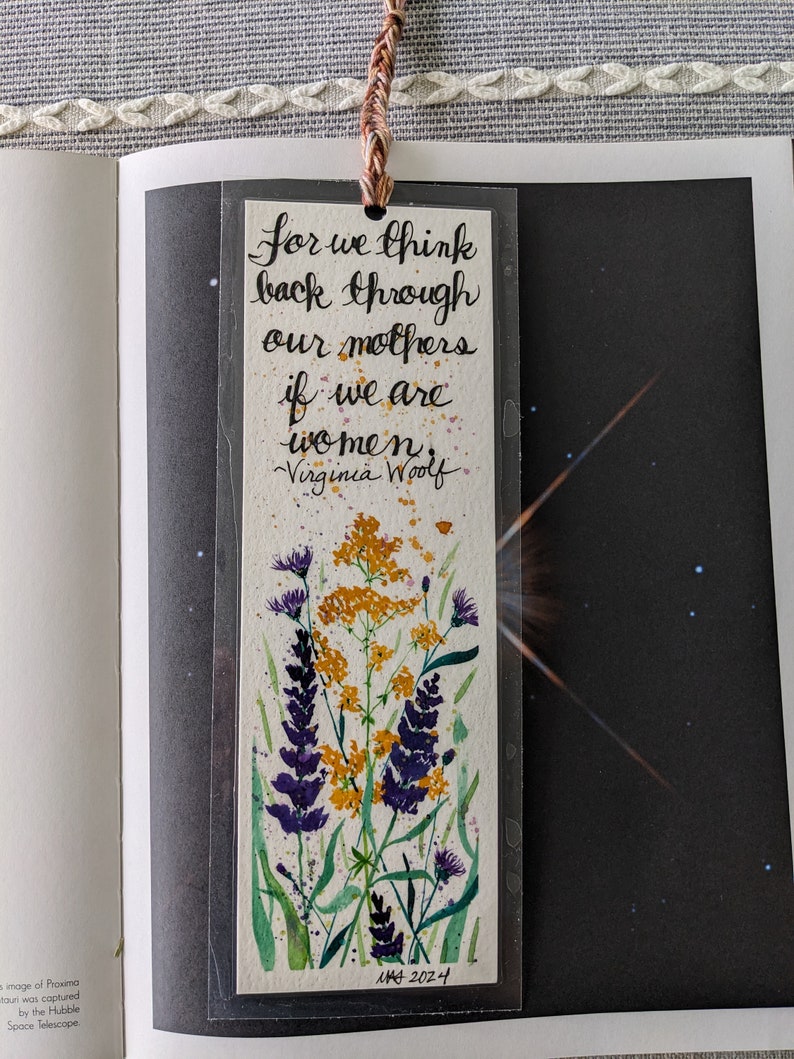 For we think
back through
our mothers
if we are
women.
~Virginia Woolf
MAS 2024
s image of Proxima
ntauri was captured
by the Hubble
Space Telescope.